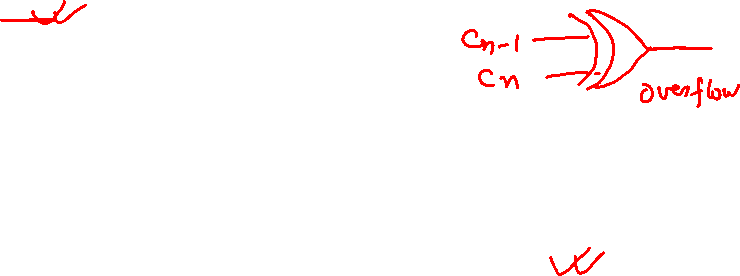 Cn-1
Cn
overflow